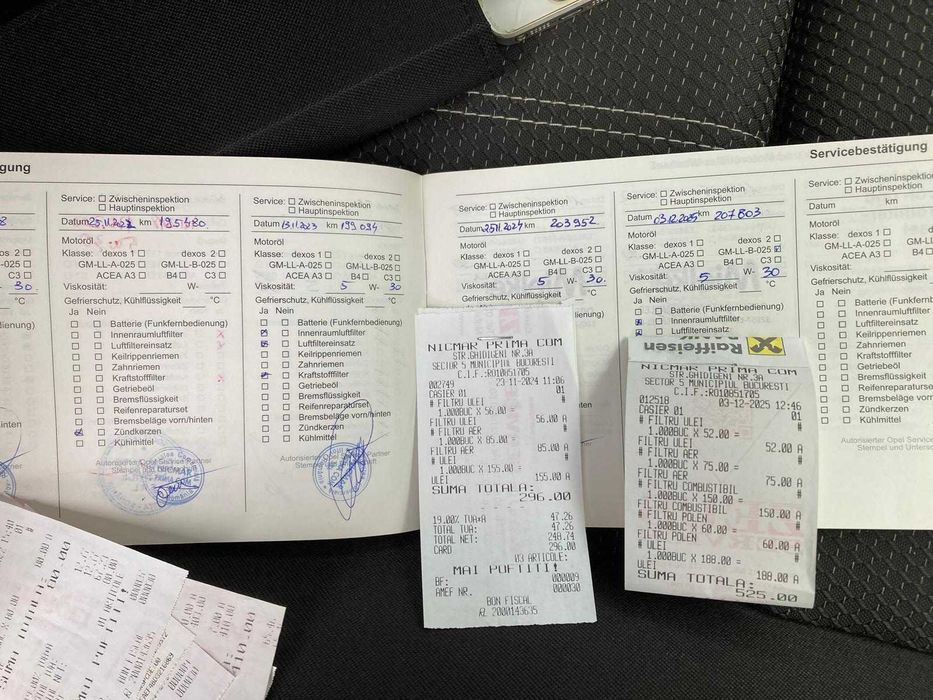 gung
Service: Zwischeninspektion
Hauptinspektion
Datum km 195480
Motoröl
Klasse: dexos 1 dexos 2
GM-LL-A-025 GM-LL-B-025
ACEA A3 B4 C3
Viskosität: W-
Gefrierschutz, Kühlflüssigkeit °C
Ja Nein
Batterie (Funkfernbedienung)
Innenraumluftfilter
Luftfiltereinsatz
Keilrippenriemen
Zahnriemen
Kraftstofffilter
Getriebeöl
Bremsflüssigkeit
Reifenreparaturset
Bremsbeläge vorn/hinten
Zündkerzen
Kühlmittel
Autorisierter Opel Service Partner
NICMAR
Service: Zwischeninspektion
Hauptinspektion
Datum 13.11.2023 km 199 094
Motoröl
Klasse: dexos 1 dexos 2
GM-LL-A-025 GM-LL-B-025
ACEA A3 B4 C3
Viskosität: 5 W- 30
Gefrierschutz, Kühlflüssigkeit °C
Ja Nein
Batterie (Funkfernbedienung)
Innenraumluftfilter
Luftfiltereinsatz
Keilrippenriemen
Zahnriemen
Kraftstofffilter
Getriebeöl
Bremsflüssigkeit
Reifenreparaturset
Bremsbeläge vorn/hinten
Zündkerzen
Kühlmittel
Autorisierter Opel Service Partner
Servicebestätigung
Service: Zwischeninspektion
Hauptinspektion
Datum 25.11.2024 km 203 952
Motoröl
Klasse: dexos 1 dexos 2
GM-LL-A-025 GM-LL-B-025
ACEA A3 B4 C3
Viskosität: 5 W- 30.
Gefrierschutz, Kühlflüssigkeit °C
NICMAR PRIMA COM
STR.GHIDIGENI NR.3A
SECTOR 5 MUNICIPIUL BUCURESTI
C.I.F.:RO10851705
002749 23-11-2024 11:06
CASIER 01 01
# FILTRU ULEI #
1.000BUC X 56.00 =
FILTRU ULEI 56.00 A
# FILTRU AER #
1.000BUC X 85.00 =
FILTRU AER 85.00 A
# ULEI #
1.000BUC X 155.00 =
ULEI 155.00 A
SUMA TOTALA:
296.00
19.00% TVA*A 47.26
TOTAL TUA: 47.26
TOTAL NET: 248.74
CARD 296.00
03 ARTICOLE:
MAI POFTITI!
BF: 000009
AMEF NR. 000030
BON FISCAL
KL 2000143635
Service: Zwischeninspektion
Hauptinspektion
Datum 03.12.2025 km 207803
Motoröl
Klasse: dexos 1 dexos 2
GM-LL-A-025 GM-LL-B-025
ACEA A3 B4 C3
Viskosität: 5 W- 30
Gefrierschutz, Kühlflüssigkeit °C
Ja Nein
Batterie (Funkfernbedienung)
Innenraumluftfilter
Luftfiltereinsatz
Raiffeisen
BANK
NICMAR PRIMA COM
STR.GHIDIGENI NR.3A
SECTOR 5 MUNICIPIUL BUCURESTI
C.I.F.:RO10851705
012518 03-12-2025 12:46
CASIER 01 01
# FILTRU ULEI #
1.000BUC X 52.00 =
FILTRU ULEI 52.00 A
# FILTRU AER #
1.000BUC X 75.00 =
FILTRU AER 75.00 A
# FILTRU COMBUSTIBIL #
1.000BUC X 150.00 =
FILTRU COMBUSTIBIL 150.00 A
# FILTRU POLEN #
1.000BUC X 60.00 =
FILTRU POLEN 60.00 A
# ULEI #
1.000BUC X 188.00 =
ULEI 188.00 A
SUMA TOTALA:
525.00
Service: Zwischeninspektion
Hauptinspektion
Datum km
Motoröl
Klasse: dexos 1
GM-LL-A-025
ACEA A3
Viskosität:
Gefrierschutz, Kühlflüssigkeit
Ja Nein
Batterie (Funk
Innenraumluf
Luftfilterei
Keilrippenrie
Zahnriemen
Kraftstofffilt
Getriebeöl
Bremsflüssi
Reifenrepara
Bremsbeläge
Zündkerzen
Kühlmittel
Autorisierter Opel Servi
Stempel und Untersc